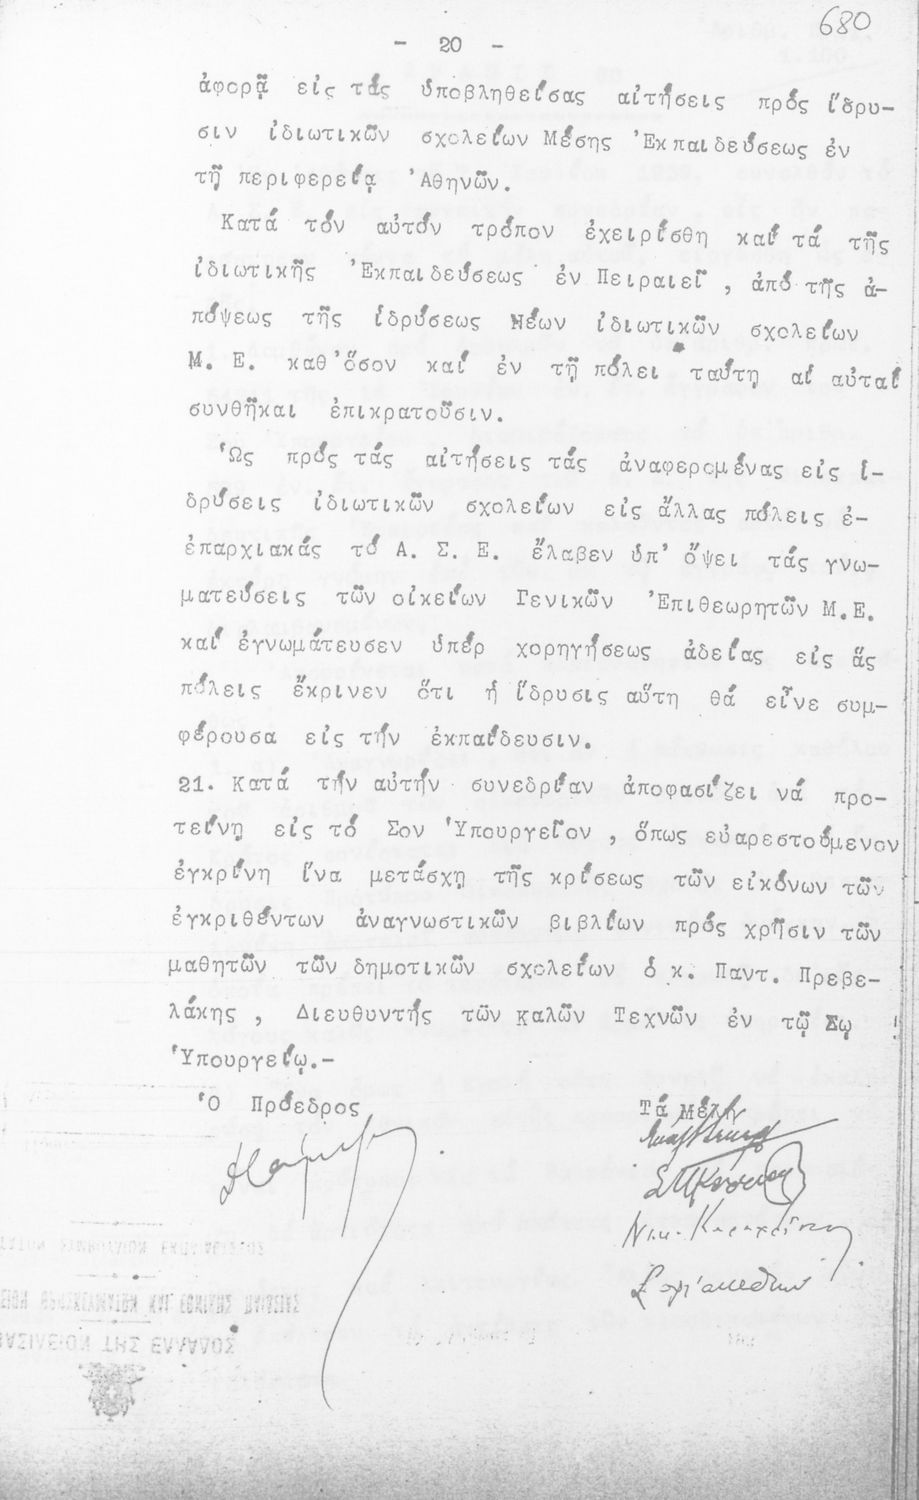 680
- 20 -
ἀφορᾷ εἰς τάς ὑποβληθείσας αἰτήσεις πρός ἵδρυ-
σιν ἰδιωτικῶν σχολείων Μέσης Ἐκπαιδεύσεως ἐν
τῇ περιφερείᾳ Ἀθηνῶν.
Κατά τόν αὐτόν τρόπον ἐχειρίσθη καί τά τῆς
ἰδιωτικῆς Ἐκπαιδεύσεως ἐν Πειραιεῖ , ἀπό τῆς ἀ-
πόψεως τῆς ἱδρύσεως Νέων ἰδιωτικῶν σχολείων
Μ. Ε. καθ'ὅσον καί ἐν τῇ πόλει ταύτῃ αἱ αὐταί
συνθῆκαι ἐπικρατοῦσιν.
Ὡς πρός τάς αἰτήσεις τάς ἀναφερομένας εἰς ἱ-
δρύσεις ἰδιωτικῶν σχολείων εἰς ἄλλας πόλεις ἐ-
ἐπαρχιακάς τό Α. Σ. Ε. ἔλαβεν ὑπ' ὄψει τάς γνω-
ματεύσεις τῶν οἰκείων Γενικῶν Ἐπιθεωρητῶν Μ.Ε.
καί ἐγνωμάτευσεν ὑπέρ χορηγήσεως ἀδείας εἰς ἅς
πόλεις ἔκρινεν ὅτι ἡ ἵδρυσις αὕτη θά εἶνε συμ-
φέρουσα εἰς τήν ἐκπαίδευσιν.
21. Κατά τήν αὐτήν συνεδρίαν ἀποφασίζει νά προ-
τείνῃ εἰς τό Σον Ὑπουργεῖον , ὅπως εὐαρεστούμενον
ἐγκρίνῃ ἵνα μετάσχῃ τῆς κρίσεως τῶν εἰκόνων τῶν
ἐγκριθέντων ἀναγνωστικῶν βιβλίων πρός χρῆσιν τῶν
μαθητῶν τῶν δημοτικῶν σχολείων ὁ κ. Παντ. Πρεβε-
λάκης , Διευθυντής τῶν καλῶν Τεχνῶν ἐν τῷ Σῳ
Ὑπουργείῳ.-
Ὁ Πρόεδρος
Τά Μέλη